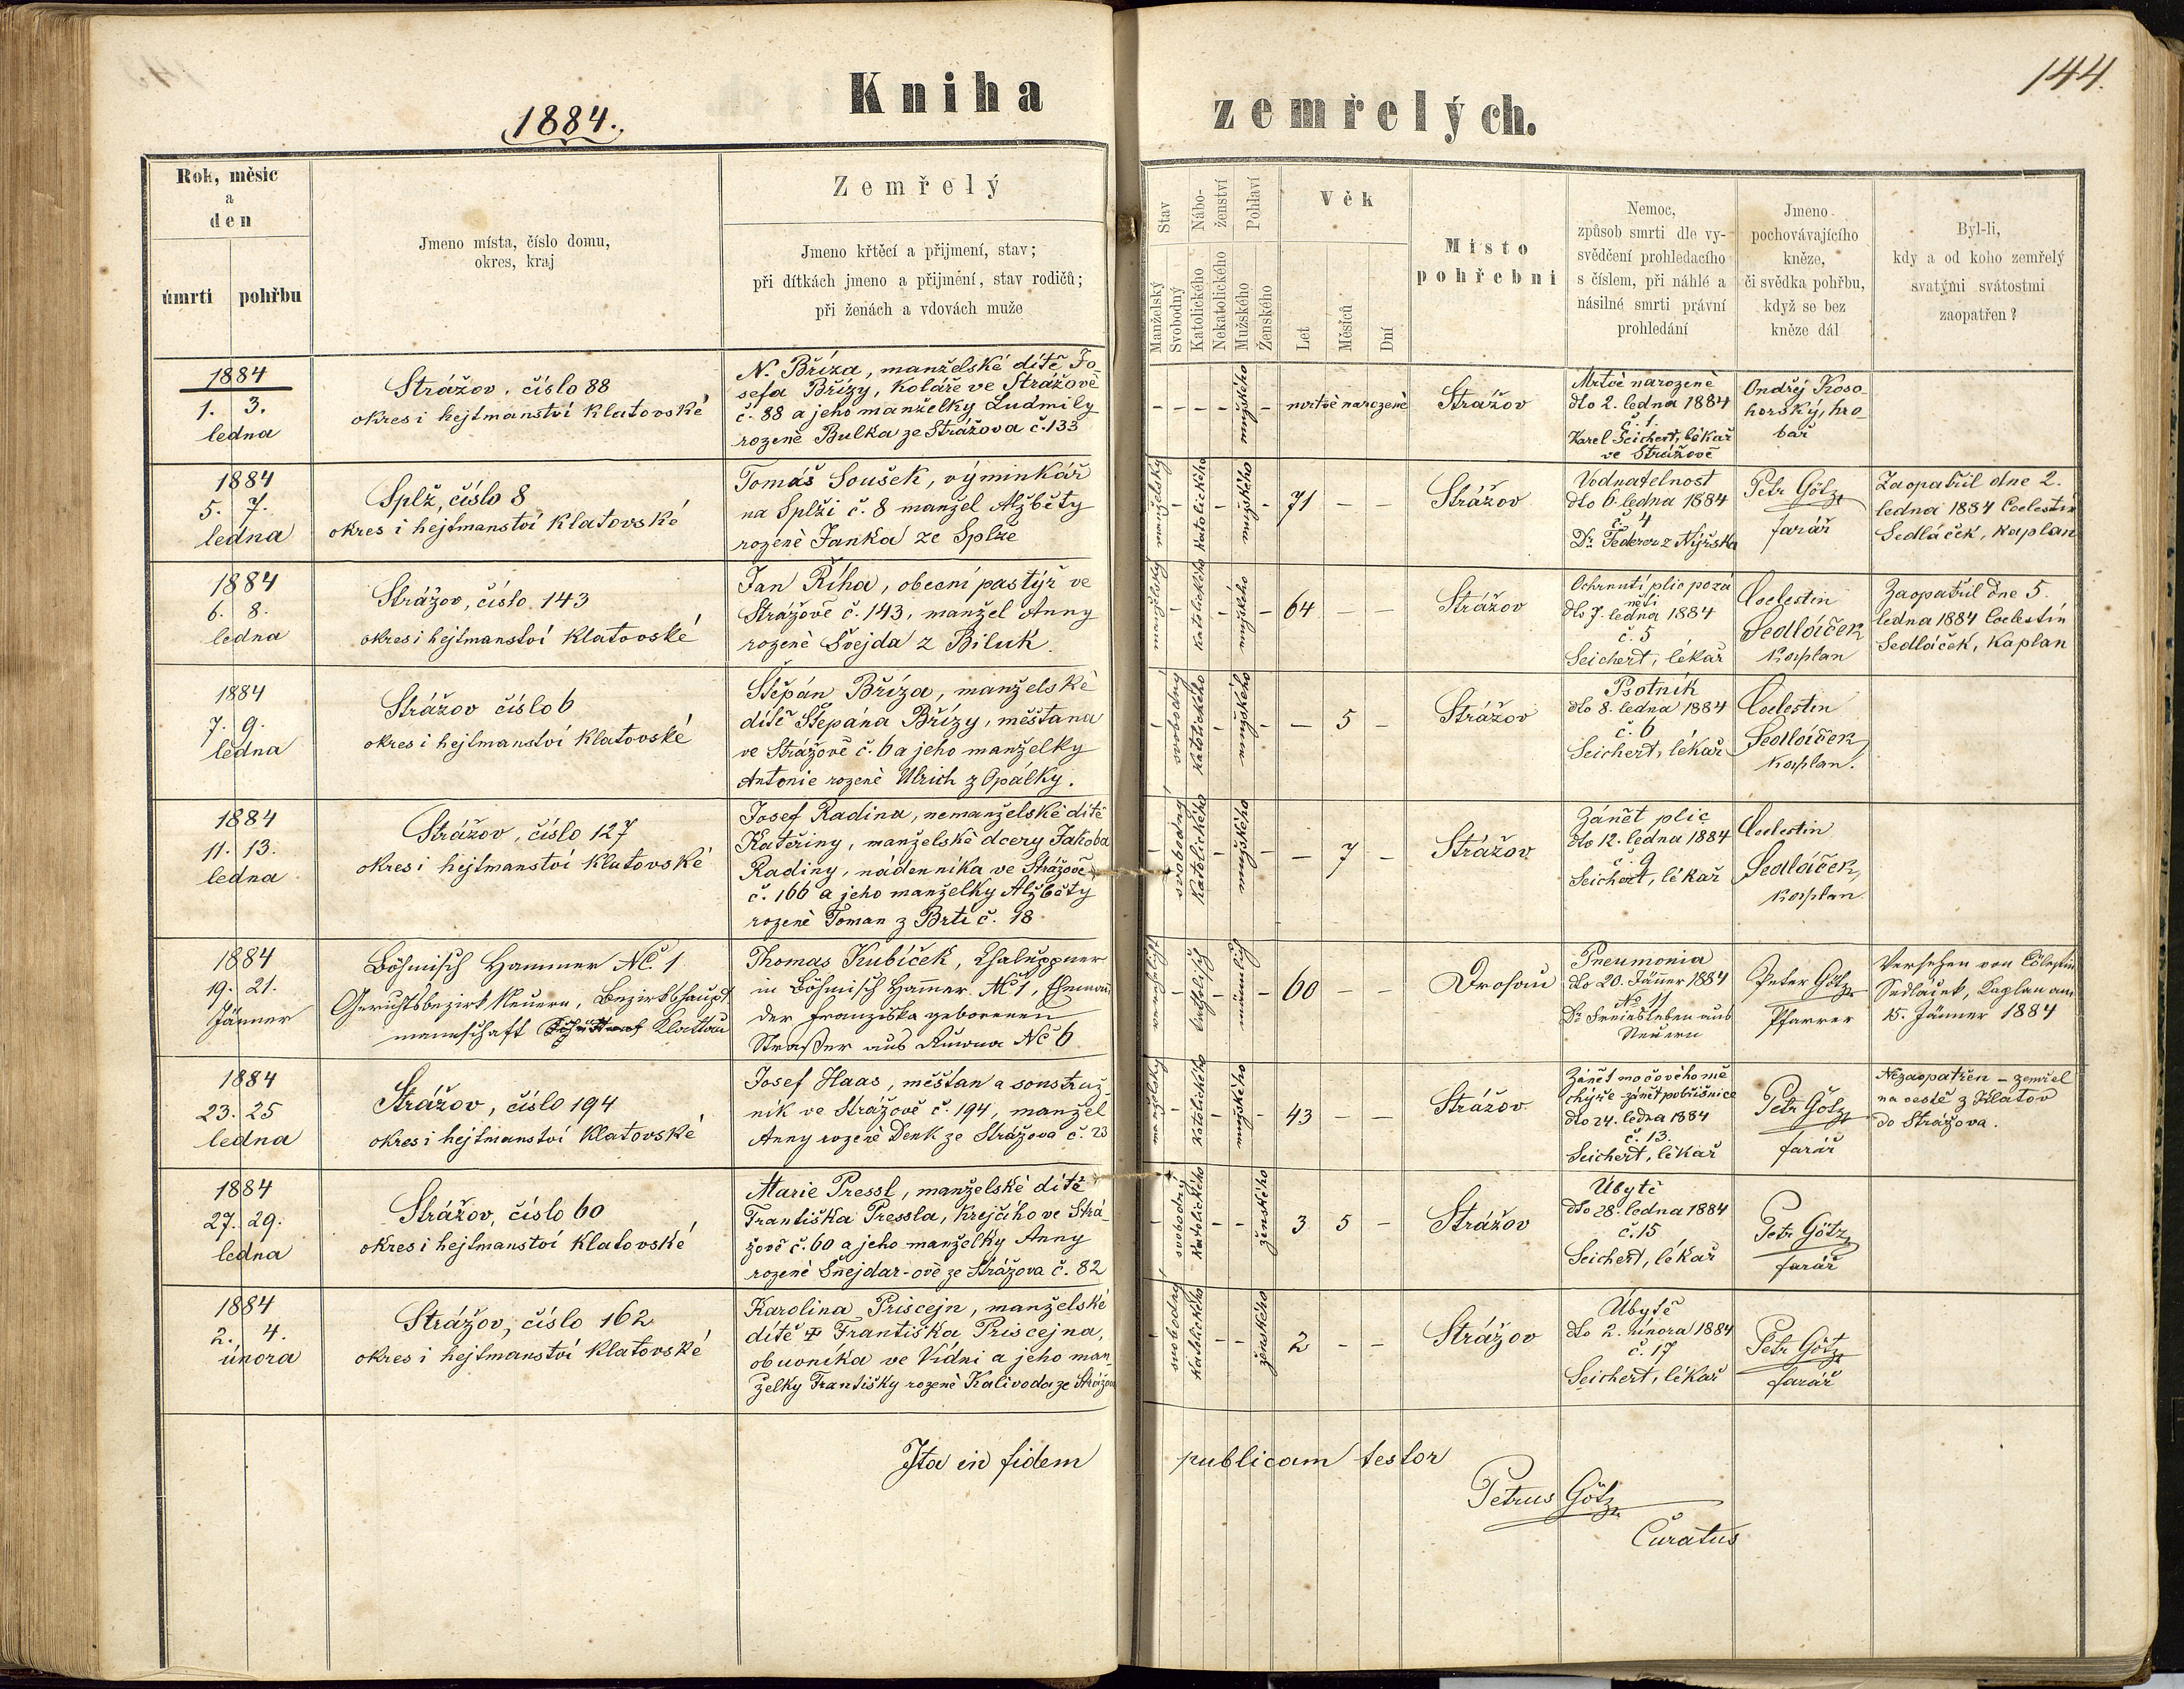 144.
Kniha zemřelých.
1884.
Rok, měsíc
a
den
úmrtí
pohřbu
Jmeno místa, číslo domu,
okres, kraj
Zemřelý
Jmeno křtěcí a přijmení, stav;
při dítkách jmeno a přijmení, stav rodičů;
při ženách a vdovách muže
Stav
Manželský
Svobodný
Nábo-
ženství
Katolického
Nekatolického
Pohlaví
Mužského
Ženského
Věk
Let
Měsíců
Dní
Místo
pohřební
Nemoc,
způsob smrti dle vy-
svědčení prohledacího
s číslem, při náhlé a
násilné smrti právní
prohledání
Jmeno
pochovávajícího
kněze,
či svědka pohřbu,
když se bez
kněze dál
Byl-li,
kdy a od koho zemřelý
svatými svátostmi
zaopatřen?
1884
1. 3.
ledna
Strážov, číslo 88
okres i hejtmanství Klatovské
N. Bříza, manželské dítě Jo-
sefa Břízy, Koláře ve Strážově
č. 88 a jeho manželky Ludmily
rozené Bulka ze Strážova č. 133
- - - - mužského - mrtvě narozené
Strážov
Mrtvě narozené
dto 2. ledna 1884
č. 1.
Karel Seichert, lékař
ve Strážově
Ondřej Koso-
horský, hro-
bař
1884
5. 7.
ledna
Splž, číslo 8
okres i hejtmanství Klatovské
Tomáš Soušek, výminkář
na Splži č. 8 manžel Alžběty
rozené Janka ze Splže
manželský - Katolického - mužského - 71 - -
Strážov
Vodnatelnost
dto 6. ledna 1884
č. 4
Dr. Federer z Nýrska
Petr Götz
farář
Zaopatřil dne 2.
ledna 1884 Coelestin
Sedláček, Kaplan
1884
6. 8.
ledna
Strážov, číslo 143
okres i hejtmanství Klatovské
Jan Říha, obecní pastýř ve
Strážově č. 143, manžel Anny
rozené Švejda z Biluk.
manželský - Katolického - mužského - 64 - -
Strážov
Ochrnutí plic pozá
nětí
dto 7. ledna 1884
č. 5
Seichert, lékař
Coelestin
Sedláček
Kaplan
Zaopatřil dne 5.
ledna 1884 Coelestin
Sedláček, Kaplan
1884
7. 9.
ledna
Strážov číslo 6
okres i hejtmanství Klatovské
Štěpán Bříza, manželské
dítě Štěpána Břízy, měšťana
ve Strážově č. 6 a jeho manželky
Antonie rozené Ulrich z Opálky.
- svobodný Katolického - mužského - - 5 -
Strážov
Psotník
dto 8. ledna 1884
č. 6
Seichert, lékař
Coelestin
Sedláček,
Kaplan.
1884
11. 13.
ledna
Strážov, číslo 127
okres i hejtmanství Klatovské
Josef Radina, nemanželské dítě
Kateřiny, manželské dcery Jakoba
Radiny, nádenníka ve Strážově
č. 166 a jeho manželky Alžběty
rozené Toman z Brti č. 18
- svobodný Katolického - mužského - - 7 -
Strážov
Zánět plic
dto 12. ledna 1884
č. 9
Seichert, lékař
Coelestin
Sedláček,
Kaplan.
1884
19. 21.
Jänner
Böhmisch Hammer Nč. 1
Gerichtsbezirk Neuern, Bezirkshaupt
mannschaft Klattau
Thomas Kubíček, Chaluppner
in Böhmisch Hammer Nč 1, Eheman
der Franziska geborenen
Straßer aus Nč 6
- katholisch - männlich - 60 - -
Drosau
Pneumonia
dto 20. Jäner 1884
No 11
Dr. Freisleben aus
Neuern
Peter Götz
Pfarrer
Versehen von Cölestin
Sedláček, Kaplan am
15. Jänner 1884
1884
23. 25
ledna
Strážov, číslo 194
okres i hejtmanství Klatovské
Josef Haas, měšťan a soustruž-
ník ve Strážově č. 194, manžel
Anny rozené Denk ze Strážova č. 23
manželský - Katolického - mužského - 43 - -
Strážov
Zánět močového mě
chýře - zánět pobřišnice
dto 24. ledna 1884
č. 13.
Seichert, lékař
Petr Götz
farář
Nezaopatřen - zemřel
na cestě z Klatov
do Strážova.
1884
27. 29.
ledna
Strážov, číslo 60
okres i hejtmanství Klatovské
Marie Pressl, manželské dítě
Františka Pressla, Krejčího ve Strá-
žově č. 60 a jeho manželky Anny
rozené Šnejdar-ové ze Strážova č. 82
- svobodný Katolického - - ženského 3 5 -
Strážov
Úbytě
dto 28. ledna 1884
č. 15
Seichert, lékař
Petr Götz
farář
1884
2. 4.
února
Strážov, číslo 162
okres i hejtmanství Klatovské
Karolina Priscejn, manželské
dítě † Františka Priscejna,
obuvníka ve Vídni a jeho man-
želky Františky rozené Kalivoda ze Strážova
- svobodný Katolického - - ženského 2 - -
Strážov
Úbytě
dto 2. února 1884
č. 17
Seichert, lékař
Petr Götz
farář
Ita in fidem publicam testor
Petrus Götz
Curatus